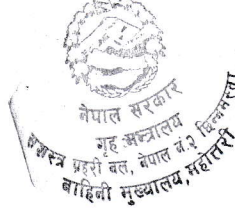 नेपाल सरकार
गृह मन्त्रालय
सशस्त्र प्रहरी बल, नेपाल नं.२ छिन्नमस्ता
बाहिनी मुख्यालय, महोत्तरी